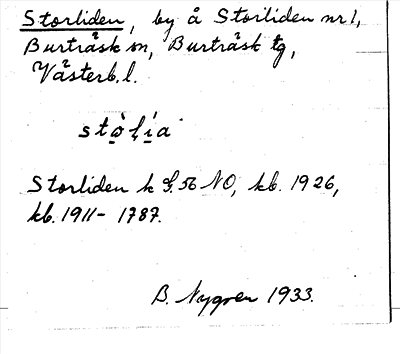 Storliden, by å Storliden nr 1,
Burträsk sn, Burträsk tg,
Västerb. l.
Storliden k S. 56 NO, kb. 1926,
kb. 1911 - 1787.
B. Nygren 1933.